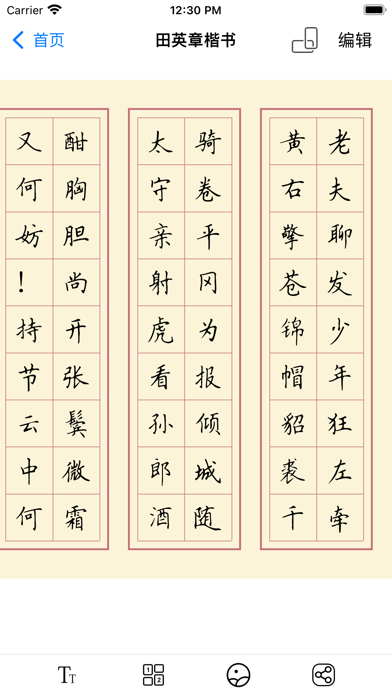 Carrier 12:30 PM
首页 田英章楷书 编辑
老夫聊发少年狂左牵
黄右擎苍锦帽貂裘千
骑卷平冈为报倾城随
太守亲射虎看孙郎酒
酣胸胆尚开张鬓微霜
又何妨！持节云中何
TT 1 2